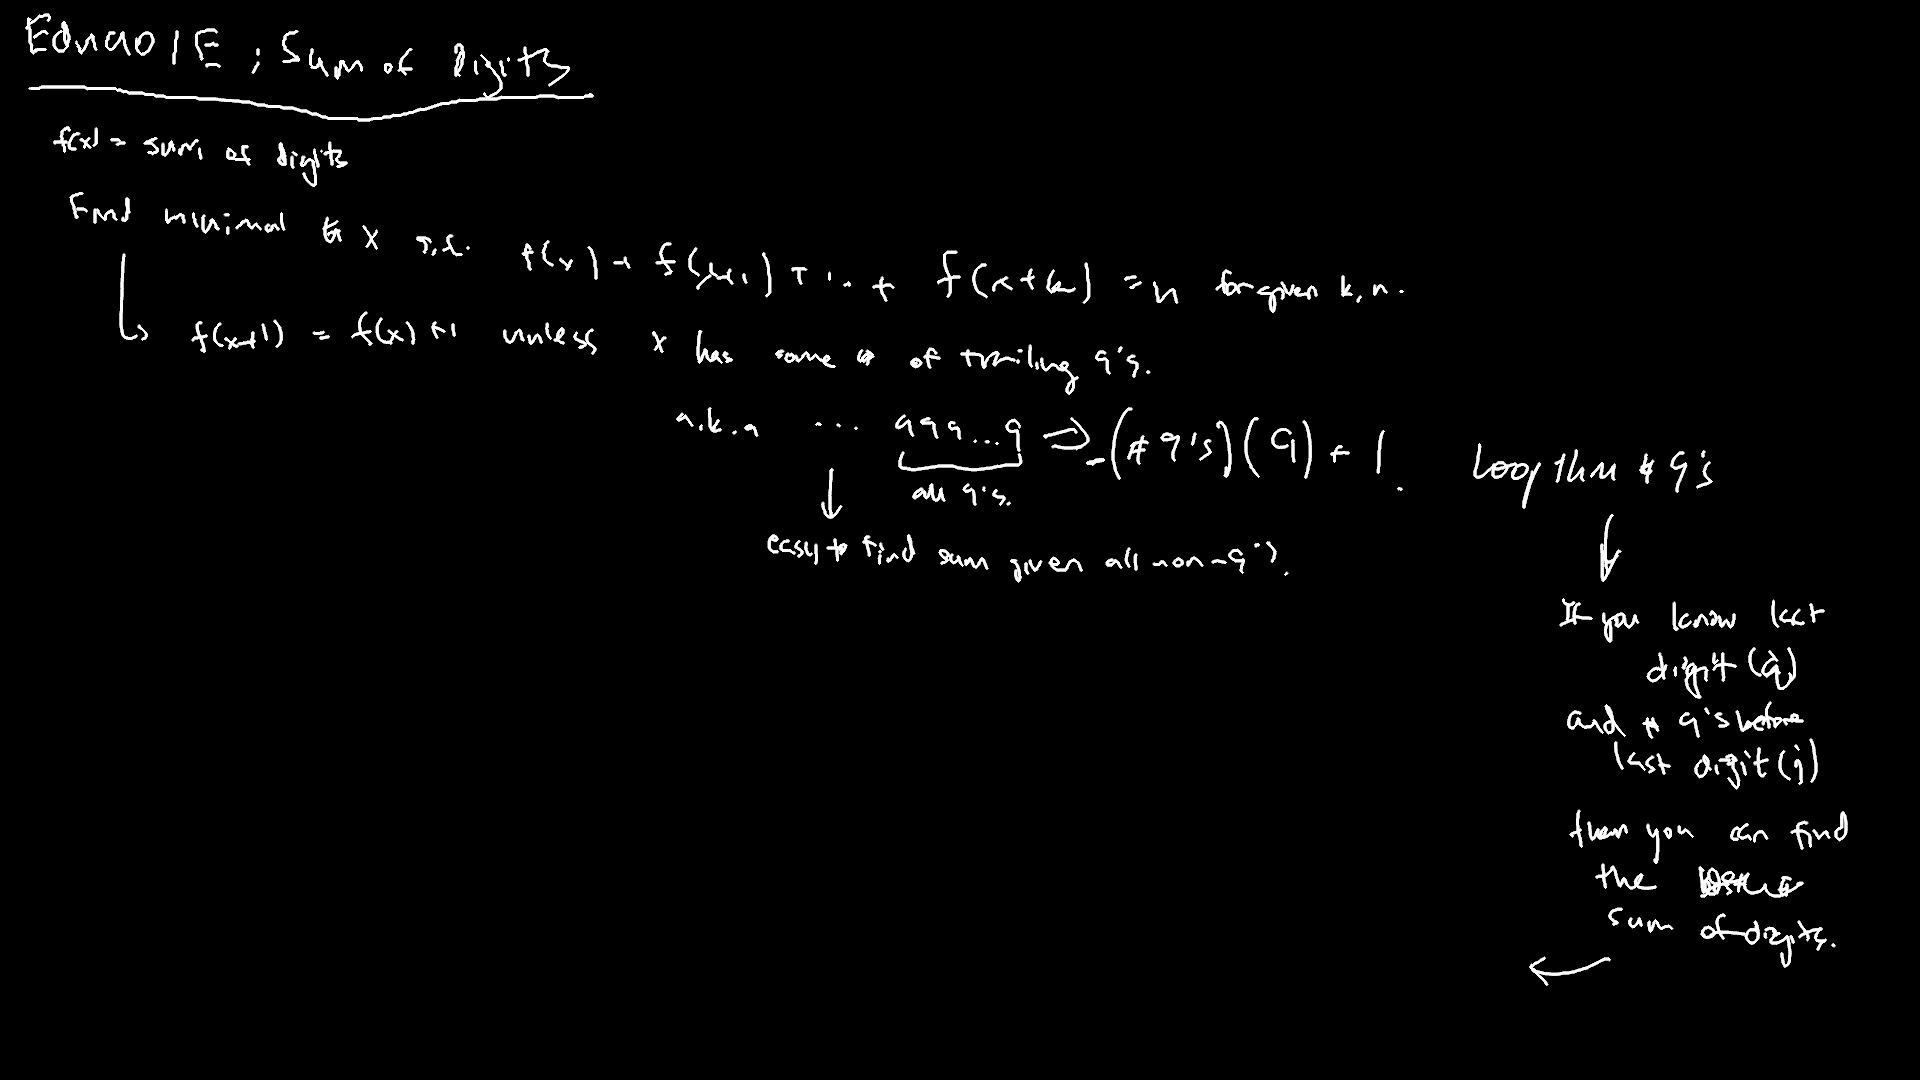 Edu90 1E ; Sum of Digits
f(x) = sum of digits
Find minimal x s.t. f(x) + f(x+1) + ... + f(x+k) = n for given k, n.
f(x+1) = f(x) + 1 unless x has some # of trailing 9's.
a.k.a ... 999...9 => -(# 9's)(9) + 1.
all 9's.
easy to find sum given all non-9's.
Loop thru # 9's
If you know last
digit (q)
and # 9's before
last digit (j)
then you can find
the
sum of digits.